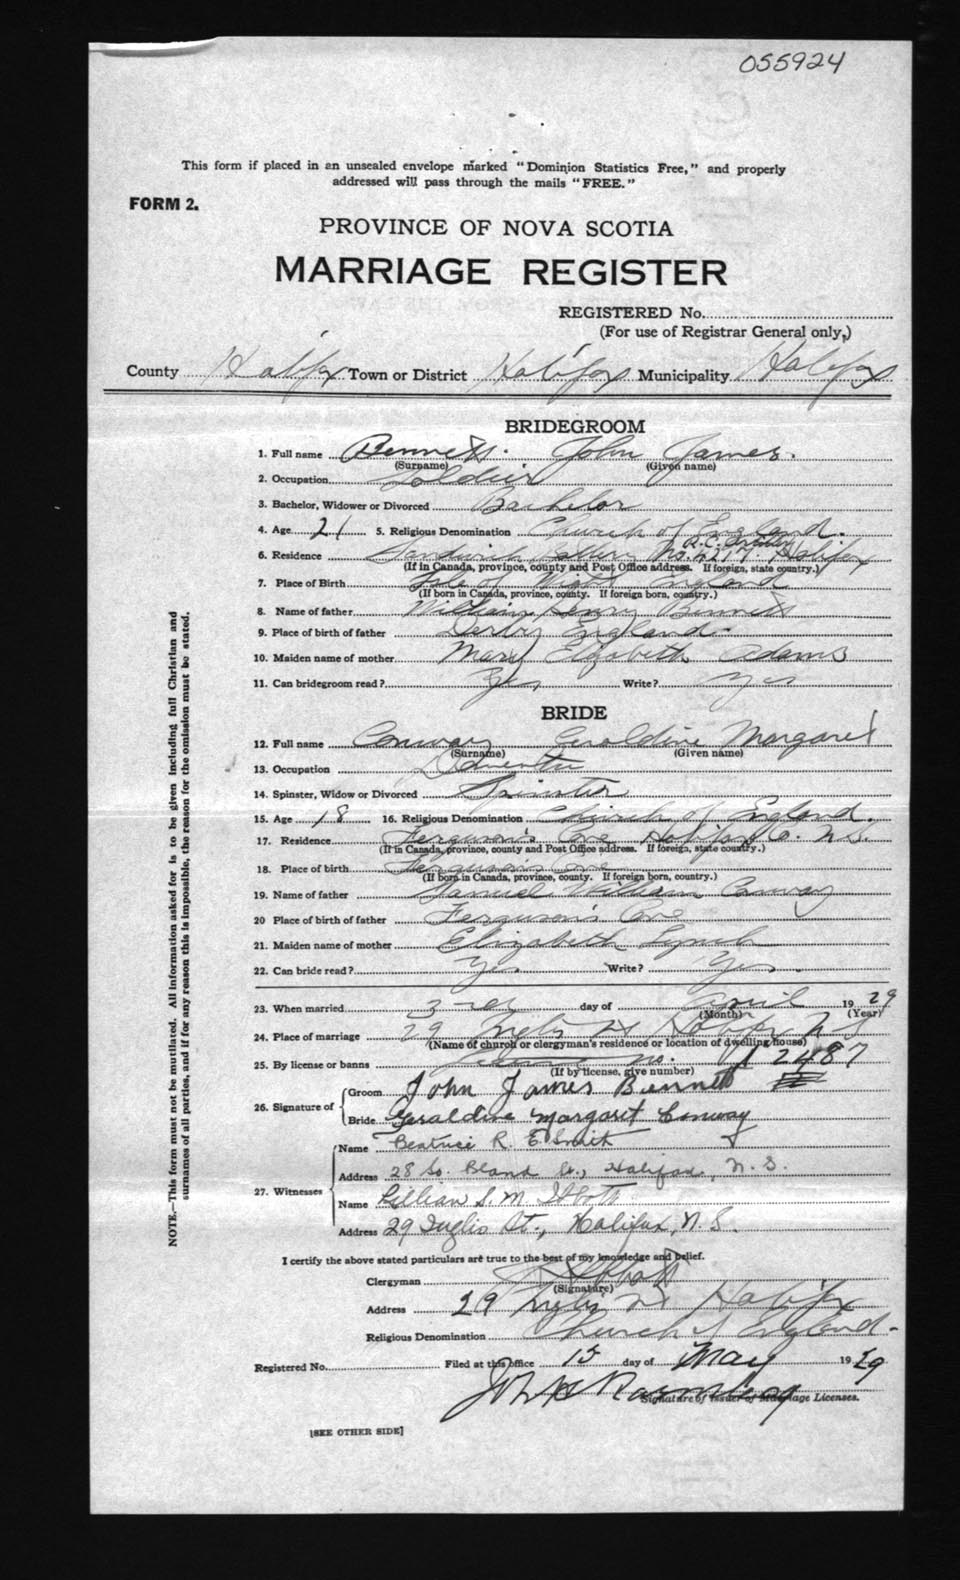 055924
This form if placed in an unsealed envelope marked "Dominion Statistics Free," and properly
addressed will pass through the mails "FREE."
FORM 2.
PROVINCE OF NOVA SCOTIA
MARRIAGE REGISTER
REGISTERED No.
(For use of Registrar General only,)
County Halifax Town or District Halifax Municipality Halifax
BRIDEGROOM
1. Full name Bennett. John James.
(Surname) (Given name)
2. Occupation Soldier
3. Bachelor, Widower or Divorced Bachelor
4. Age 21 5. Religious Denomination Church of England.
6. Residence Sandwich Battery No. 4217 R.C. Artillery Halifax
(If in Canada, province, county and Post Office address. If foreign, state country.)
7. Place of Birth Isle of Wight England
(If born in Canada, province, county. If foreign born, country.)
8. Name of father William Henry Bennett
9. Place of birth of father Derby England
10. Maiden name of mother Mary Elizabeth Adams
11. Can bridegroom read? Yes Write? Yes
BRIDE
12. Full name Conway Geraldine Margaret
(Surname) (Given name)
13. Occupation Domestic
14. Spinster, Widow or Divorced Spinster
15. Age 18 16. Religious Denomination Church of England.
17. Residence Ferguson's Cove Halifax Co. N.S.
(If in Canada, province, county and Post Office address. If foreign, state country.)
18. Place of birth Ferguson's Cove
(If born in Canada, province, county. If foreign born, country.)
19. Name of father Samuel William Conway
20 Place of birth of father Ferguson's Cove
21. Maiden name of mother Elizabeth Lynch
22. Can bride read? Yes. Write? Yes.
23. When married 3rd day of April 19 29
(Month) (Year)
24. Place of marriage 29 Inglis St Halifax N S
(Name of church or clergyman's residence or location of dwelling house)
25. By license or banns License no. A 2487
(If by license, give number)
26. Signature of Groom John James Bennett
Bride Geraldine Margaret Conway
27. Witnesses Name Beatrice R. E. Smith
Address 28 So. Bland St., Halifax, N.S.
Name Lillian S. M. Abbott
Address 29 Inglis St., Halifax, N.S.
I certify the above stated particulars are true to the best of my knowledge and belief.
Clergyman
(Signature)
Address 29 Inglis St Halifax
Religious Denomination Church of England.
Registered No. Filed at this office 15 day of May 19 29
Signature of Issuer of Marriage Licenses.
[SEE OTHER SIDE]
NOTE.—This form must not be mutilated. All information asked for is to be given including full Christian and
surnames of all parties, and if for any reason this is impossible, the reason for the omission must be stated.